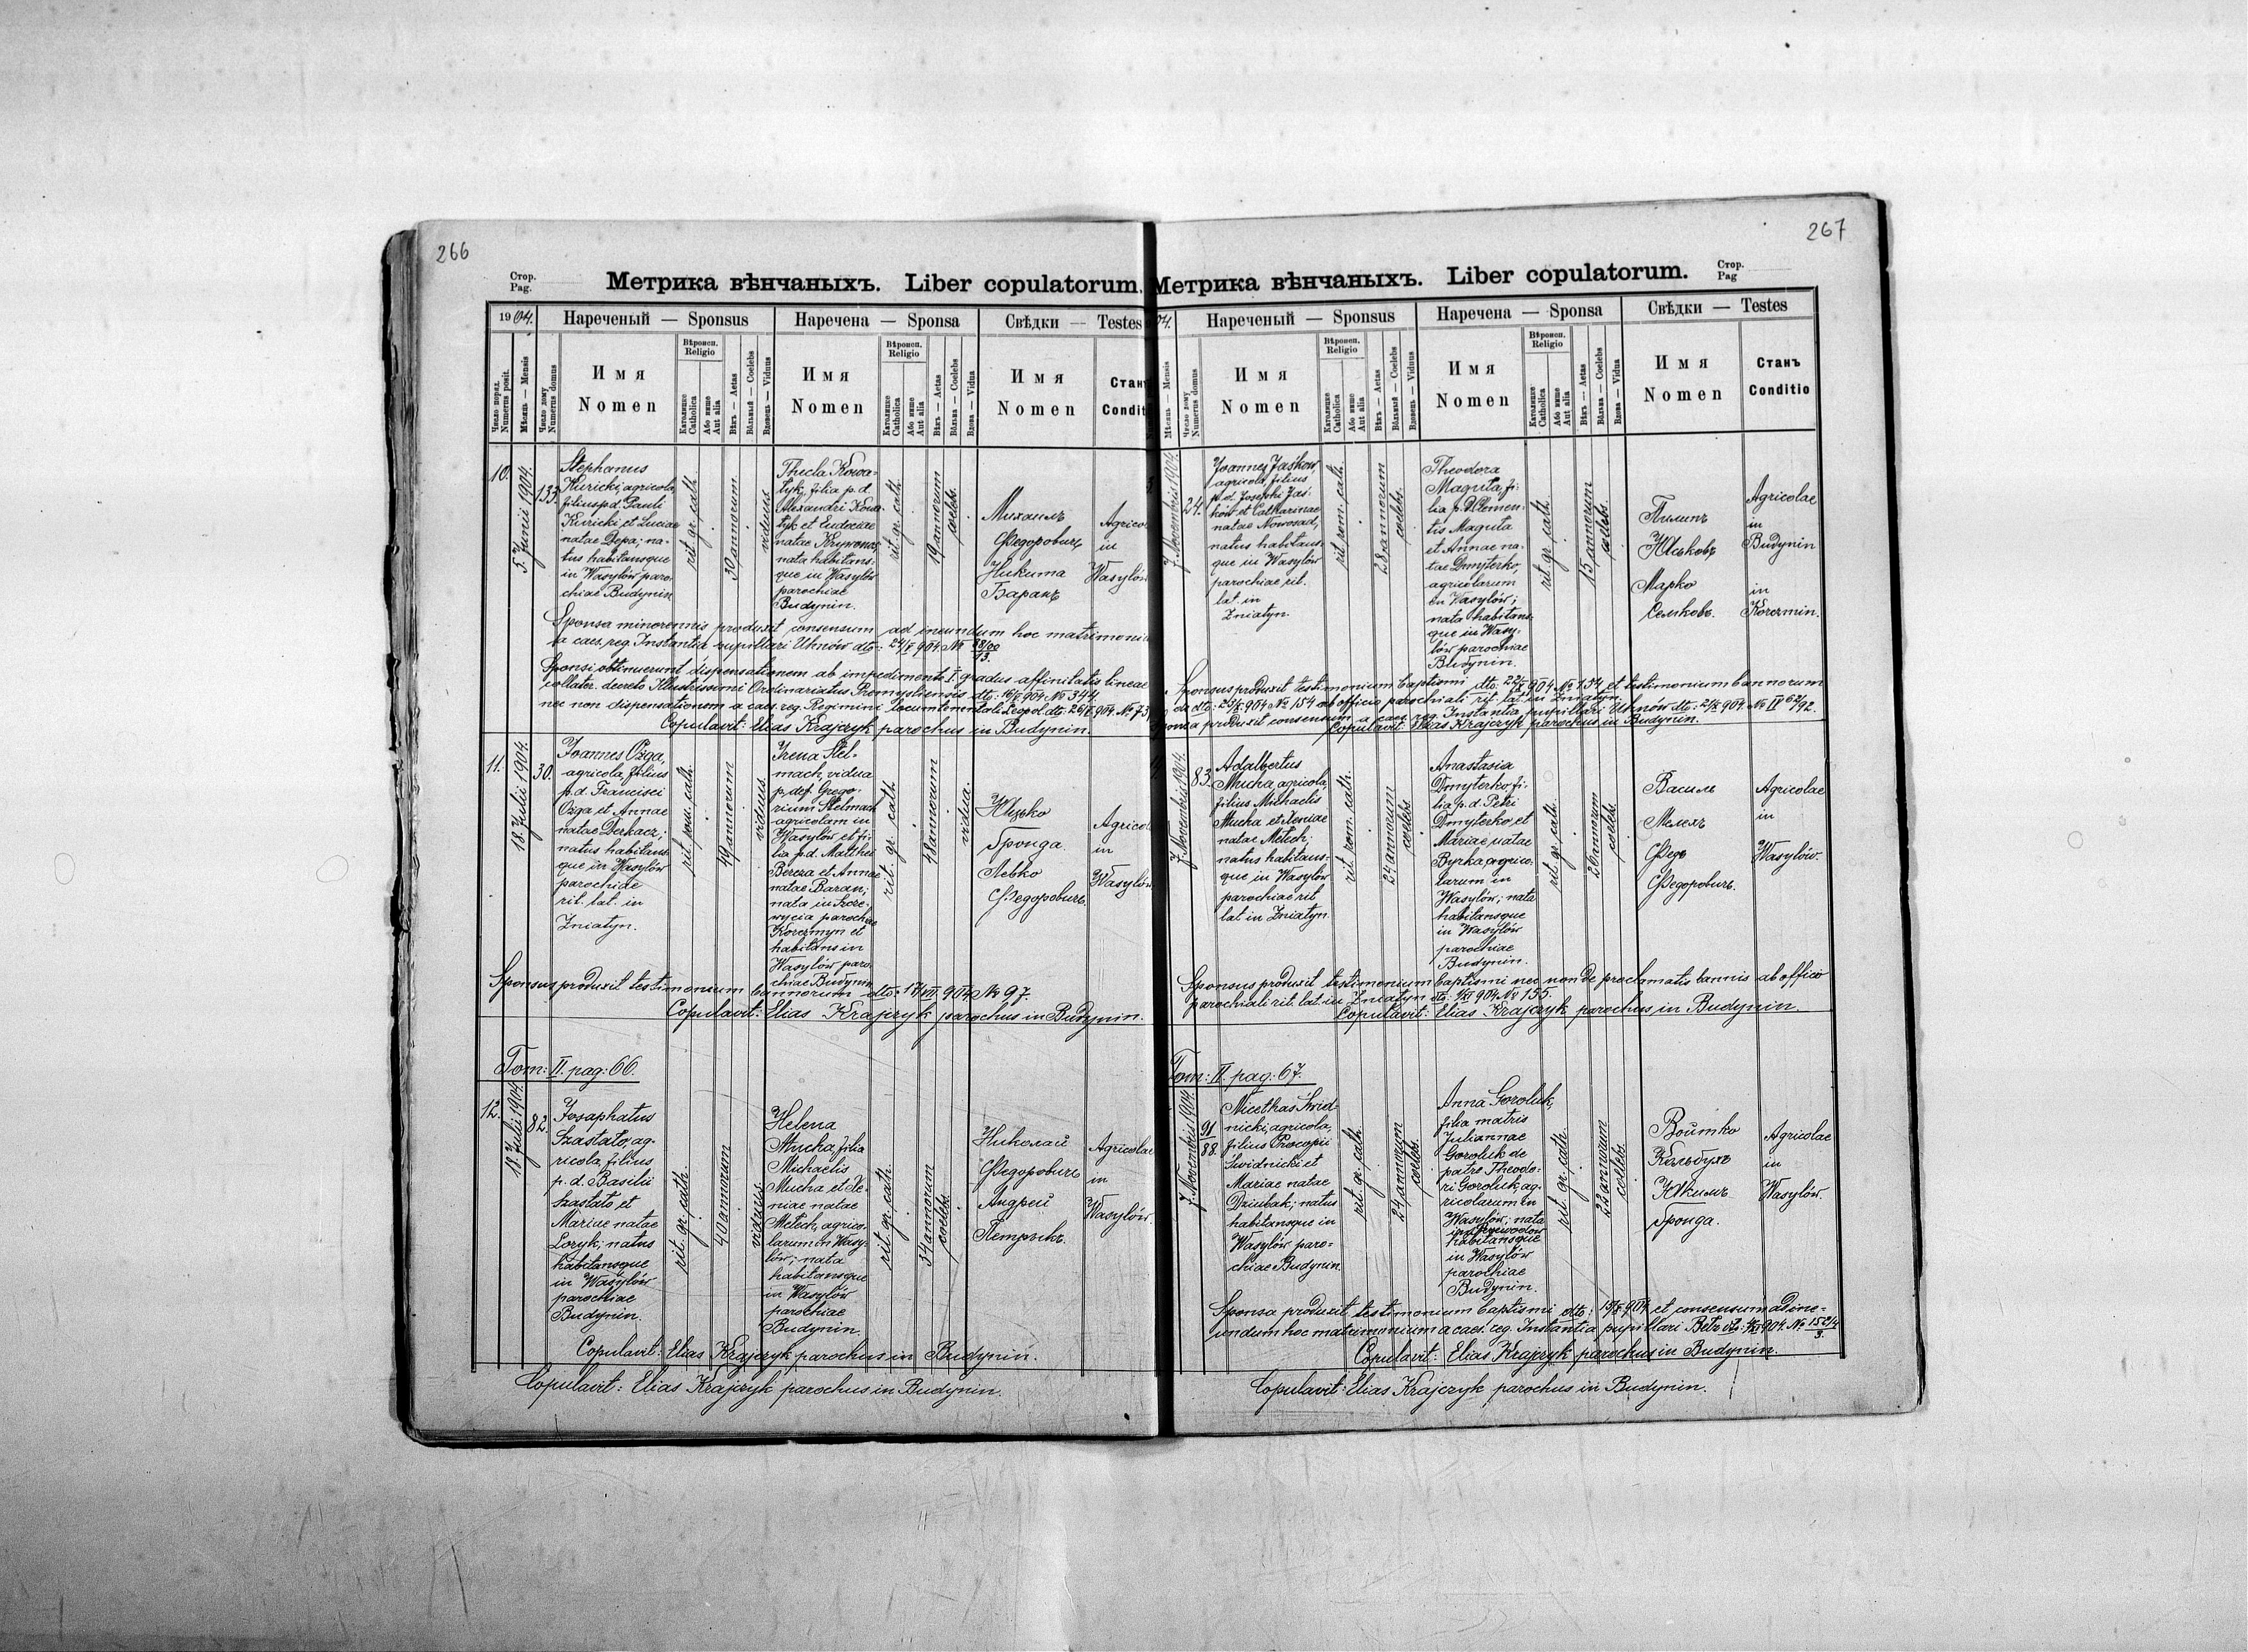 266
Стор.
Pag.
Метрика вѣнчаныхъ. Liber copulatorum.
1904.
Нареченый — Sponsus
Наречена — Sponsa
Свѣдки — Testes
Число поряд.
Numerus posit.
Мѣсяць — Mensis
Число дому
Numerus domus
Имя
Nomen
Вѣроисп.
Religio
Католицке
Catholica
Або инше
Aut alia
Вѣкъ — Aetas
Вôльный — Coelebs
Вдовець — Viduus
Имя
Nomen
Вѣроисп.
Religio
Католицке
Catholica
Або инше
Aut alia
Вѣкъ — Aetas
Вôльна — Coelebs
Вдова — Vidua
Имя
Nomen
Стан
Condit
10.
5. Junii 1904.
133.
Stephanus
Kuricki, agricola,
filius p.d. Pauli
Kuricki et Luciae
natae Depa; na-
tus habitansque
in Wasylów paro-
chiae Budynin
rit. gr. cath.
30 annorum
viduus
Thecla Kowa-
lyk, filia p. d.
Alexandri Kowa-
lyk et Eudociae
natae Krywonos,
nata habitans-
que in Wasylów
parochiae
Budynin.
rit. gr. cath.
19 annorum
coelebs.
Михаилъ
Федоровичъ
Никита
Баранъ
Agricol
in
Wasylów
Sponsa minorennis produxit consensum ad ineundum hoc matrimoniu
a caes. reg. Instantia pupillari Uhnów dto: 24/V 904 №
Sponsi obtinuerunt dispensationem ab impedimento I. gradus affinitatis lineae
collater. decreto Illustrissimi Ordinariatus Premysliensis dto: 16/V 904 № 344
nec non dispensationem a caes. reg. Regimini locumtenentali Leopol dto: 26/V 904 № 73
Copulavit: Elias Krajczyk parochus in Budynin.
11.
18. Julii 1904.
30.
Joannes Ożga,
agricola, filius
p.d. Francisci
Ożga et Annae
natae Derkacz;
natus habitans-
que in Wasylów
parochiae
rit. lat. in
Żniatyn.
rit. rom. cath.
49 annorum
viduus.
Irena Stel-
mach, vidua
p. def. Grego-
rium Stelmach
agricolam in
Wasylów et fi-
lia p.d. Matthei
Bereza et Annae
natae Baran;
nata in Szcze-
wycia parochiae
Korczmyn et
habitans in
Wasylów paro-
chiae Budynin
rit. gr. cath.
48 annorum
vidua.
Юцько
Гронда.
Левко
Федоровичъ.
Agricol
in
Wasylów
Sponsus produxit testimonium bannorum dto: 17/VII 904 № 97.
Copulavit: Elias Krajczyk parochus in Budynin.
Tom: II. pag: 66.
12.
18. Julii 1904.
82.
Josaphatus
Szastało, ag-
ricola, filius
p. d. Basilii
Szastało et
Mariae natae
Loryk; natus
habitansque
in Wasylów
parochiae
Budynin.
rit. gr. cath.
40 annorum
viduus.
Helena
Mucha, filia
Michaelis
Mucha et Xe-
niae natae
Metech, agrico-
larum in Wasy-
lów; nata
habitansque
in Wasylów
parochiae
Budynin.
rit. gr. cath.
34 annorum
coelebs.
Николай
Федоровичъ
Андрей
Петрыкъ.
Agricolae
in
Wasylów.
Copulavit: Elias Krajczyk parochus in Budynin.
Copulavit: Elias Krajczyk parochus in Budynin.
267
Стор.
Pag
Метрика вѣнчаныхъ. Liber copulatorum.
04.
Нареченый — Sponsus
Наречена — Sponsa
Свѣдки — Testes
Мѣсяць — Mensis
Число дому
Numerus domus
Имя
Nomen
Вѣроисп.
Religio
Католицке
Catholica
Або инше
Aut alia
Вѣкъ — Aetas
Вôльный — Coelebs
Вдовець — Viduus
Имя
Nomen
Вѣроисп.
Religio
Католицке
Catholica
Або инше
Aut alia
Вѣкъ — Aetas
Вôльна — Coelebs
Вдова — Vidua
Имя
Nomen
Станъ
Conditio
7. Novembris 1904
24.
Joannes Jaśków,
agricola, filius
p.d. Josephi Jaś-
ków et Catharinae
natae Nowosad,
natus habitans-
que in Wasylów
parochiae rit.
lat. in
Żniatyn.
rit. rom. cath.
28 annorum
coelebs.
Theodora
Maguta, fi-
lia p.d. Clemen-
tis Maguta
et Annae na-
tae Dmyterko,
agricolarum
in Wasylów;
nata habitans-
que in Wasy-
lów parochiae
Budynin.
rit. gr. cath.
15 annorum
coelebs.
Пилипъ
Юськовъ
Марко
Сеньковъ.
Agricolae
in
Budynin
in
Korczmin.
Sponsus produxit testimonium baptismi dto: 904 № 134 et testimonium bannorum
de dto: 904 № 154 ab officio parochiali rit. lat. in Żniatyn.
Sponsa produxit consensum a caes. reg. Instantia pupillari Uhnów dto: 904 № IV 62/92.
Copulavit: Elias Krajczyk parochus in Budynin.
7. Novembris 1904.
83.
Adalbertus
Mucha, agricola,
filius Michaelis
Mucha et Xeniae
natae Metech;
natus habitans-
que in Wasylów
parochiae rit
lat in Żniatyn.
rit. rom. cath.
24 annorum
coelebs
Anastasia
Dmyterko, fi-
lia p.d. Petri
Dmyterko, et
Mariae natae
Byrka, agrico-
larum in
Wasylów; nata
habitansque
in Wasylów
parochiae
Budynin.
rit gr. cath.
26 annorum
coelebs.
Василь
Мелехъ
Федъ
Федоровичъ.
Agricolae
in
Wasylów.
Sponsus produxit testimonium baptismi nec non de proclamatis bannis ab officio
parochiali rit. lat. in Żniatyn dto: 904 № 155.
Copulavit: Elias Krajczyk parochus in Budynin.
Tom: II. pag: 67.
7. Novembris 1904.
91
88.
Nicethas Swid-
nicki, agricola,
filius Procopii
Swidnicki et
Mariae natae
Dziubak; natus
habitansque in
Wasylów paro-
chiae Budynin
rit gr. cath.
24 annorum
coelebs.
Anna Goroluk,
filia matris
Juliannae
Goroluk de
patre Theodo-
ri Goroluk, ag-
ricolarum in
Wasylów; nata
in Przewodów
habitansque
in Wasylów
parochiae
Budynin.
rit. gr. cath.
22 annorum
coelebs.
Войтко
Кольбухъ
Якимъ
Гронда.
Agricolae
in
Wasylów.
Sponsa produxit testimonium baptismi dto: 904 et consensum ad ine-
undum hoc matrimonium a caes. reg. Instantia pupillari Bełz dto: 904. №
Copulavit: Elias Krajczyk parochus in Budynin.
Copulavit: Elias Krajczyk parochus in Budynin.